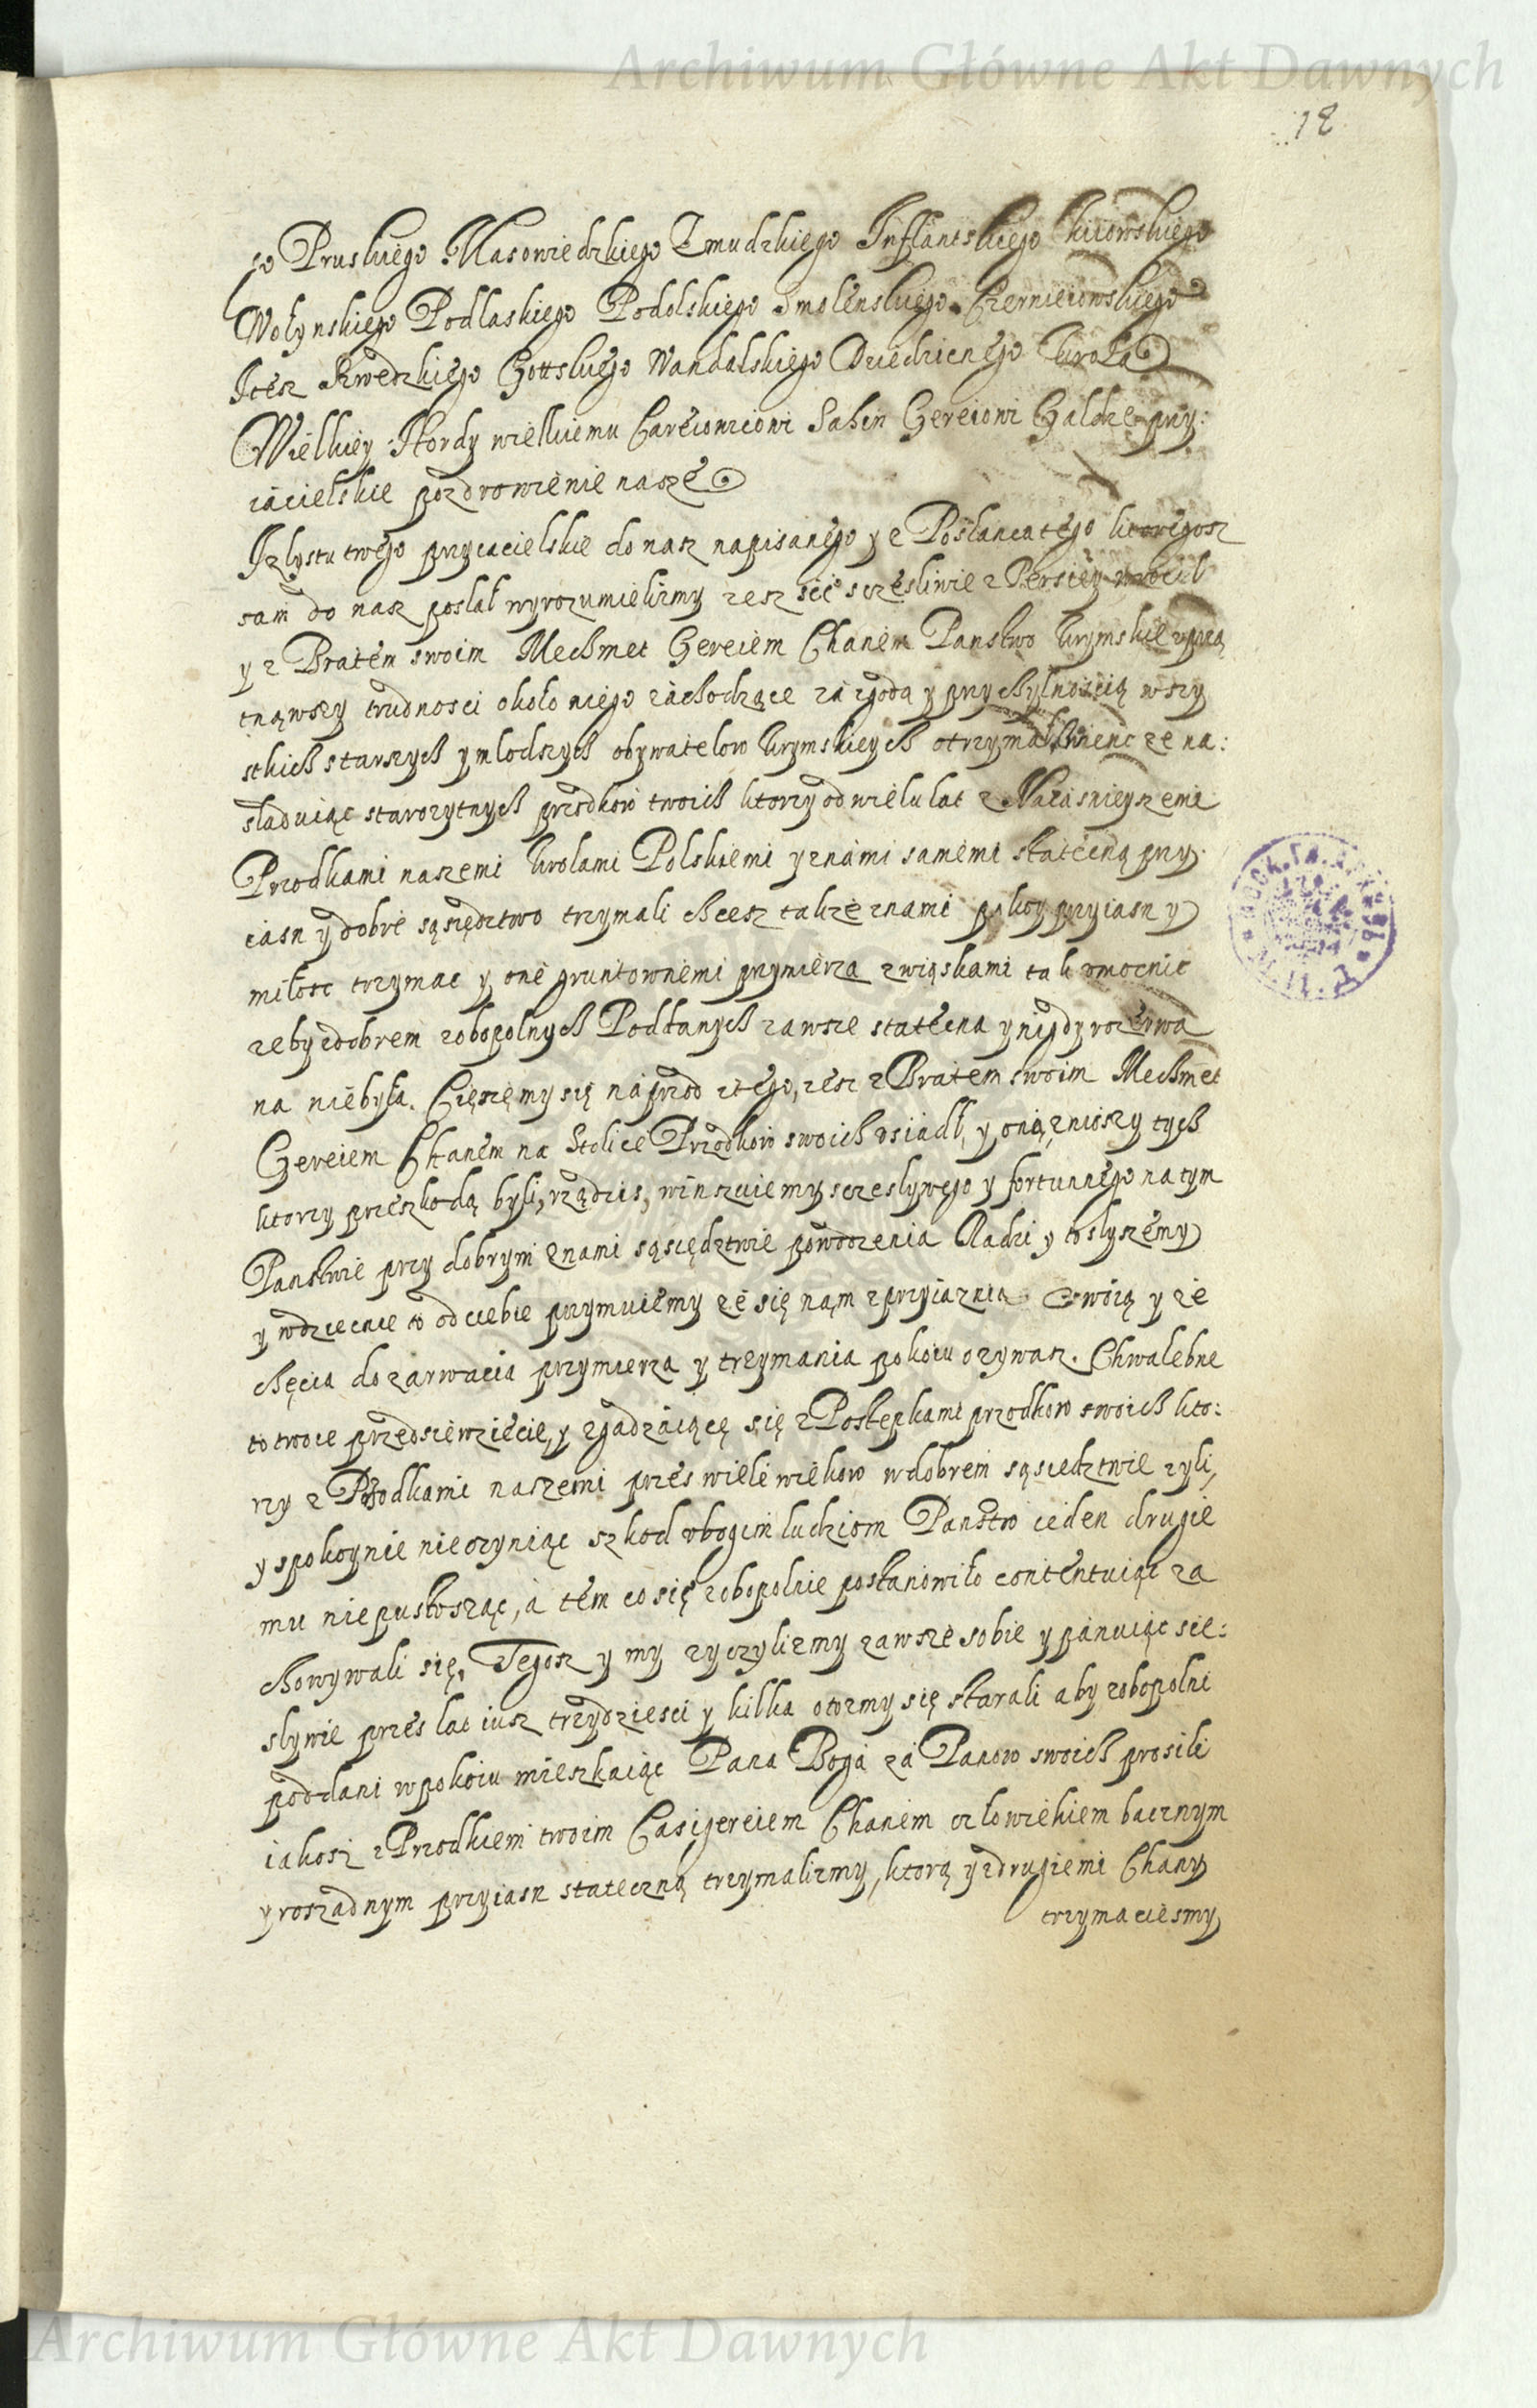 Archiwum Główne Akt Dawnych
12
go Pruskiego Masowiedzkiego Zmudzkiego Inflantskiego kiiowskiego
Wołynskiego Podlaskiego Podolskiego Smolenskiego Czerniehowskiego
Itesz Szwedzkiego Gottskiego Wandalskiego Dziedzicnego krola
Wielkiey Hordy wielkiemu Careiowicowi Sahin Gereiowi Galdze przy:
iacielskie pozdrowienie nasze
Izlystu twego przyiacielskie do nasz napisanego y z Poslanca tego ktoregosz
sam do nasz poslal wyrozumielizmy zesz sie szczesliwie z Persiey wrocil
y z Bratem swoim Mechmet Gereiem Chanem Panstwo krymskie uprzą
tnąwszy trudnosci około niego zachodzące za zgodą y przychylnoscią wszy
stkich starszych y mlodszych obywatelow krymskieych otrzymał wienc ze na:
sladuiąc starozytnych przodkow twoich ktorzy od wielu lat z Naiasnieyszemi
Przodkami naszemi krolami Polskiemi y z nami samemi stateczną przy:
iasn y dobre sąsiędztwo trzymali chcesz takze z nami pokoy przyiasn y
miłosc trzymac y one gruntownemi przymierza zwiąskami tak umocnic
zeby z dobrem zobopolnych Poddanych zawsze stateczna y nigdy rozerwa
na niebyła. Cięszęmy się naprzod z tego, zesz z Bratem swoim Mechmet
Gereiem Chanem na Stolice Przodkow swoich osiadł, y onią zniosszy tych
ktorzy przeszkodą byli, rządzis, winszuiemy szczeslywego y fortunnego na tym
Panstwie przy dobrym z nami sąsiędztwie powodzenia Radzi y to slyszemy
y wdziecnie to od ciebie przymuiemy ze się nąm z przyiaznia swoią y ze
chęcia do zarwacia przymierza y trzymania pokoiu ozywasz. Chwalebne
to twoie przedsiewziecie, y zgadzaiącę się z Postepkami przodkow swoich kto:
rzy z Przodkami naszemi przes wiele wiekow w dobrem sąsiedztwie zyli,
y spokoynie nieczyniąc szkod ubogim ludziom Panstw ieden drugie
mu niepustosząc, a tem co się zobopolnie postanowiło contentuiąc za
chowywali się, Tegosz y my zyczylizmy zawsze sobie y panuiąc scie:
slywie przes lat iusz trzydziesci y kilka otozmy się starali aby zobopolni
poddani w pokoiu mieszkaiąc Pana Boga za Panow swoich prosili
iakosz z Przodkiem twoim Casigereiem Chanem człowiekiem bacznym
y roszadnym przyiasn stateczną trzymalizmy, ktorą y z drugiemi Chany
trzymaciesmy
Archiwum Główne Akt Dawnych